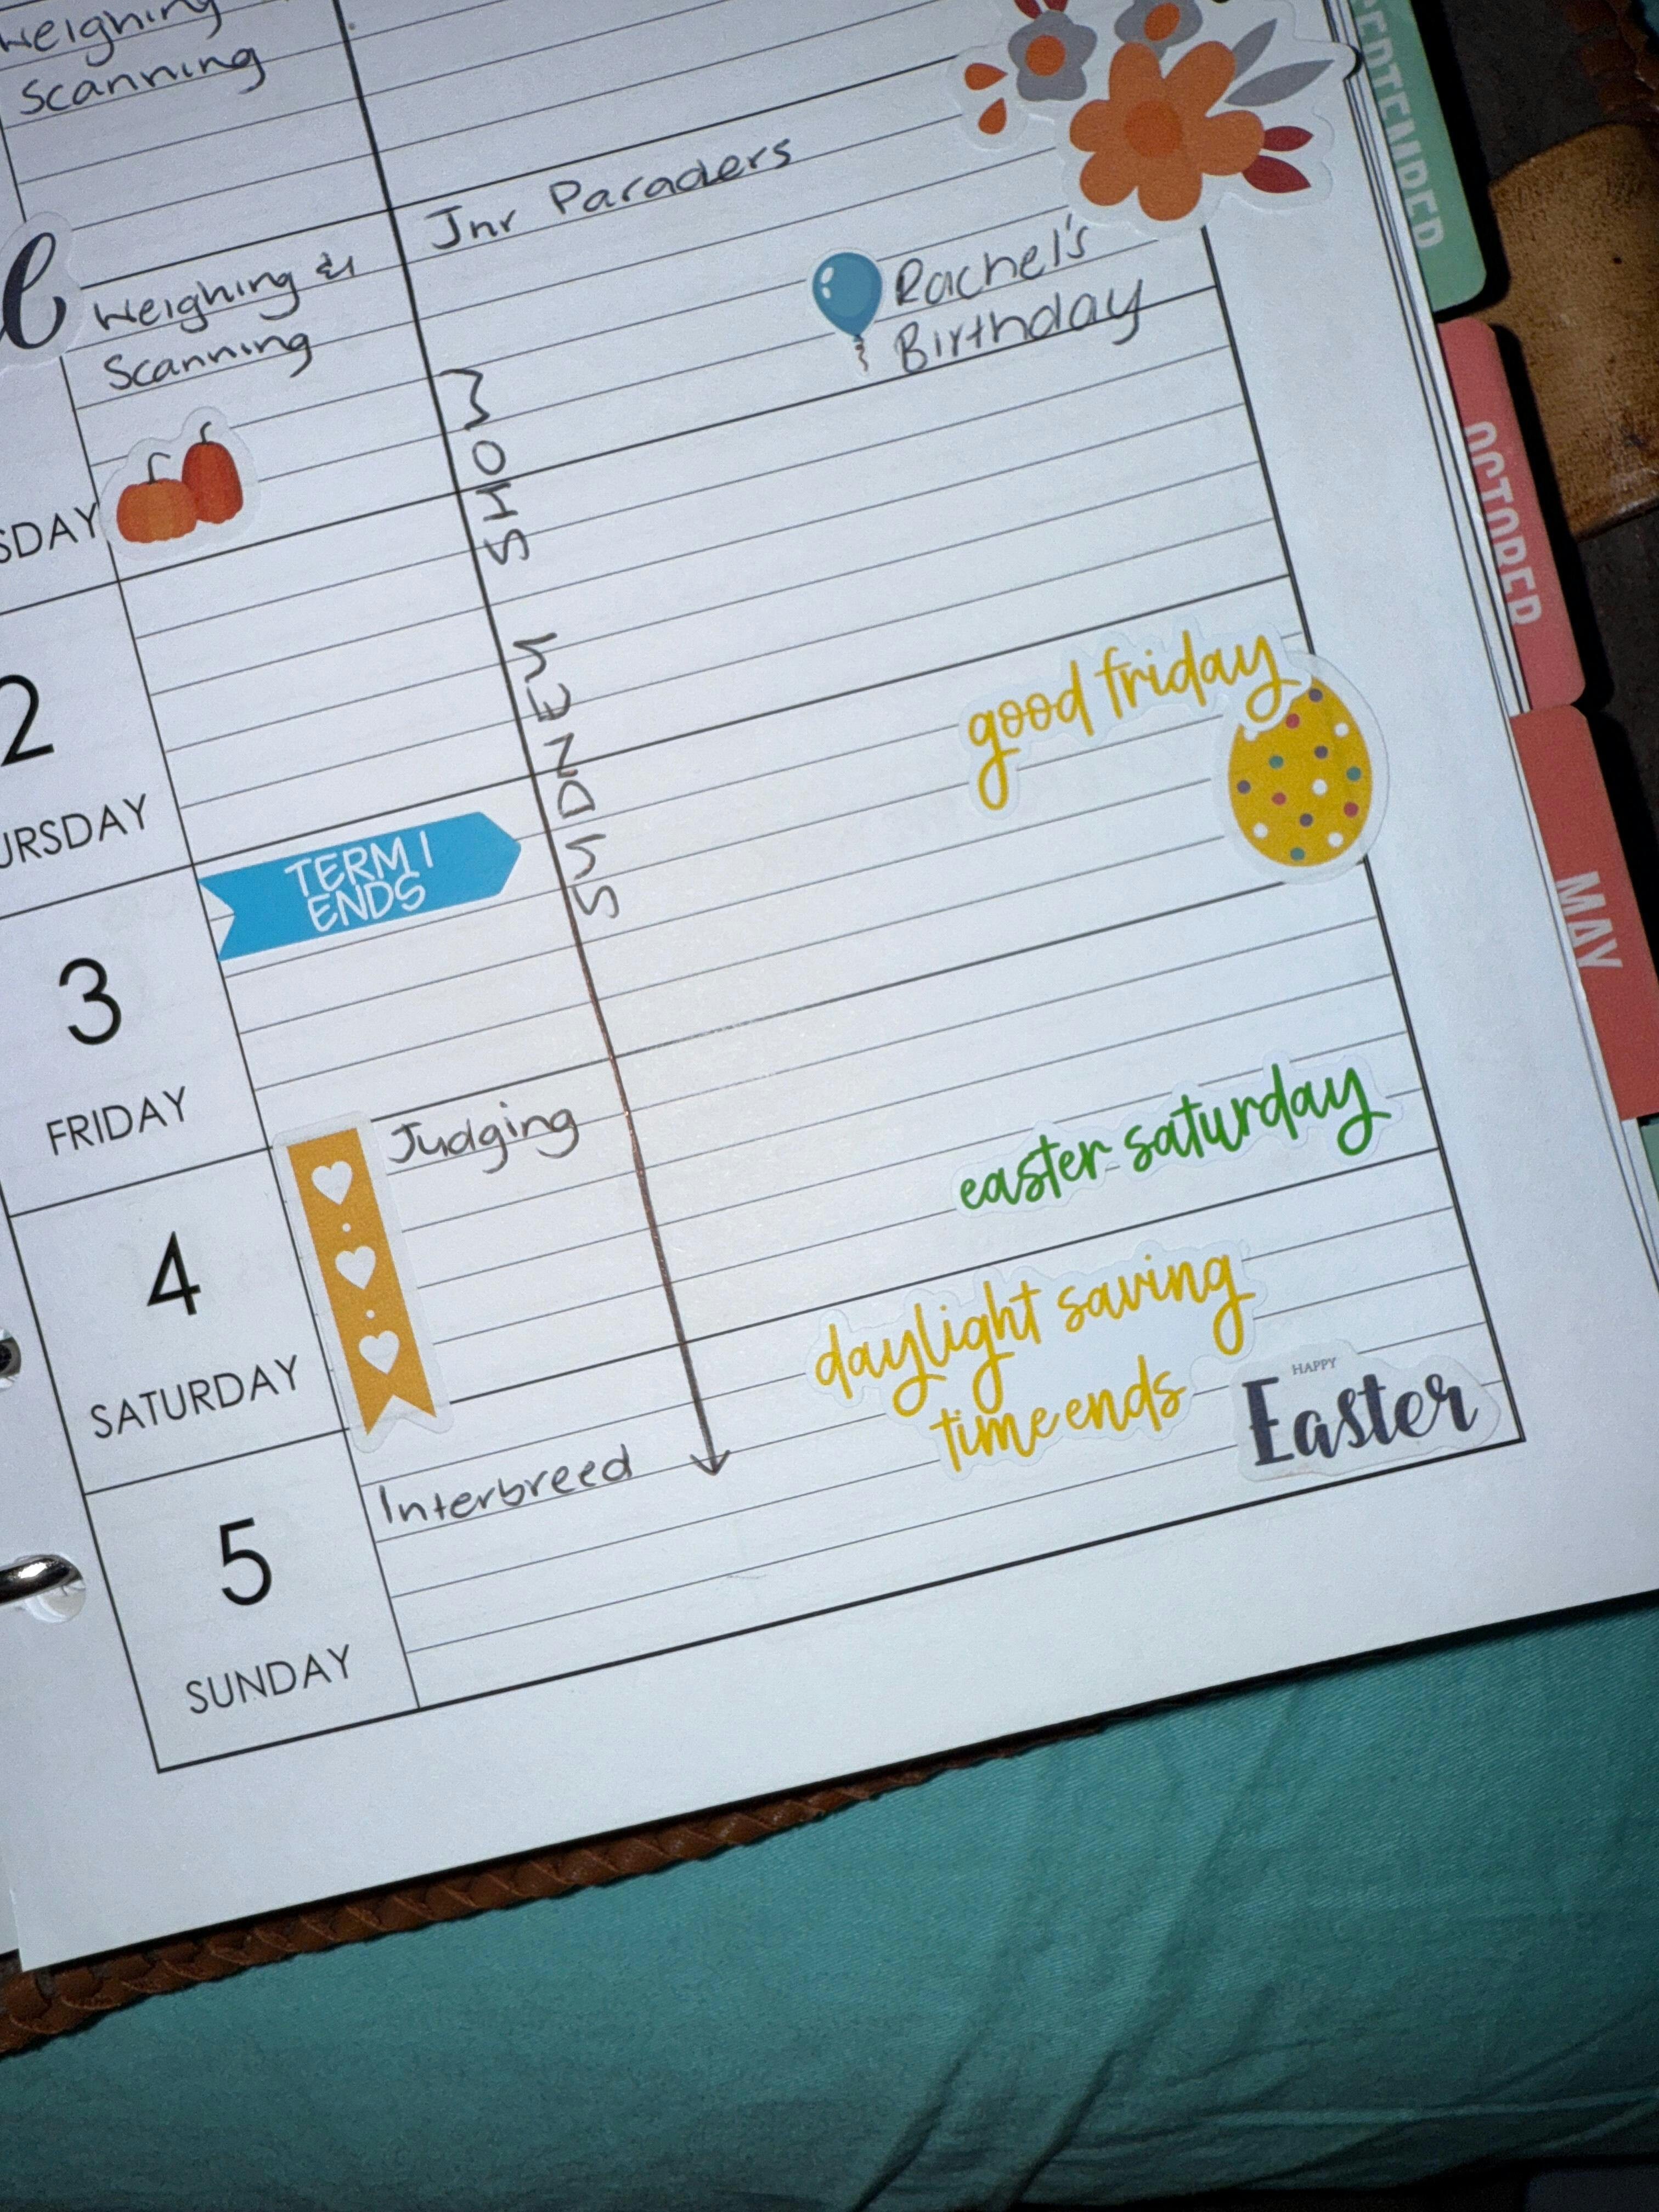 Weighing
Scanning
Jnr Paraders
l
Weighing &
Scanning
Rachel's
Birthday
SDAY
SYDNEY SHOW
2
URSDAY
good friday
TERM 1
ENDS
3
FRIDAY
Judging
easter saturday
4
SATURDAY
daylight saving
time ends
HAPPY
Easter
Interbreed
5
SUNDAY
SEPTEMBER
OCTOBER
MAY